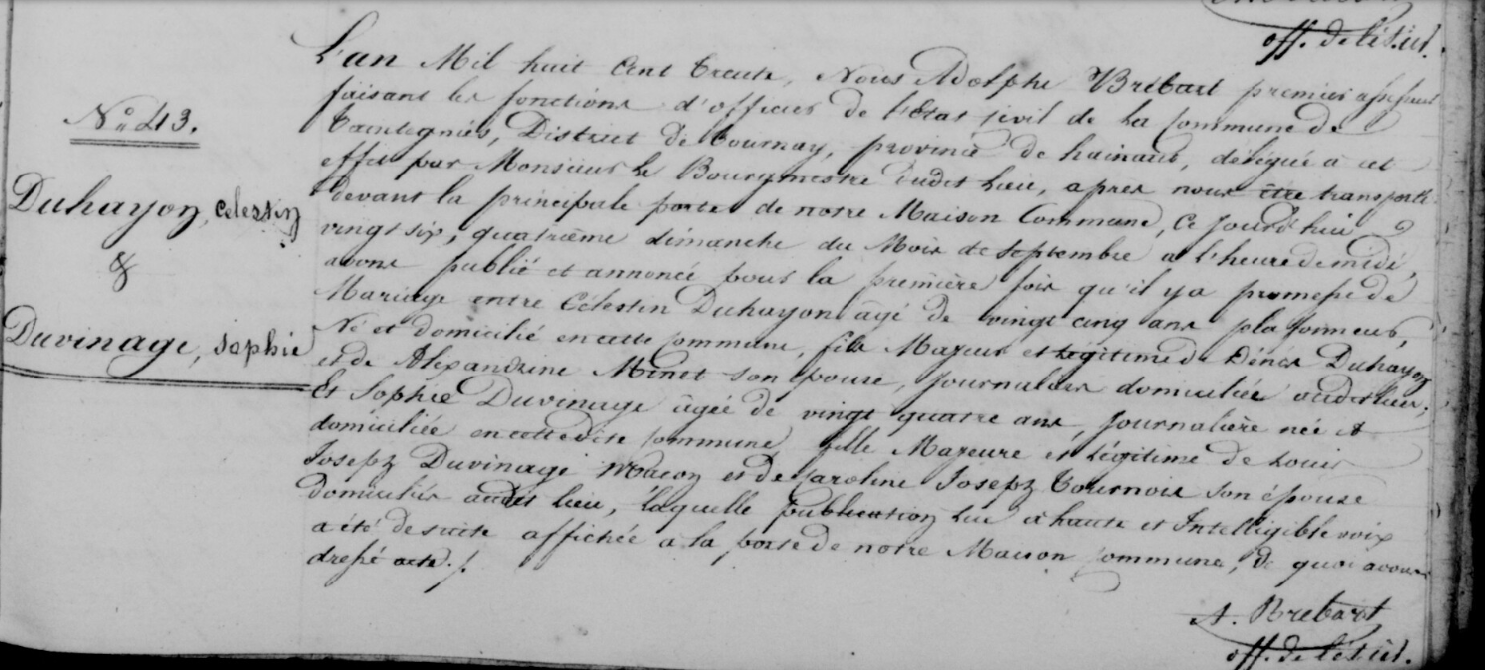 off. de l'ét. civil.
N° 43.
Duhayon, Celestin
&
Duvinage, Sophie
L'an Mil huit Cent trente, Nous Adolphe Brébart premier assesseur
faisant les fonctions d'officier de l'Etat Civil de la Commune de
Taintegnies, District de Tournay, province de hainaut, délégué à cet
effet par Monsieur le Bourgmestre dudit Lieu, après nous être transporté
devant la principale porte de notre Maison Commune, Ce jourd'hui
vingt six, quatrième dimanche du Mois de Septembre à l'heure de midi,
avons publié et annoncé pour la première fois qu'il y a promesse de
Mariage entre Célestin Duhayon âgé de vingt cinq ans plafonneur,
Né et domicilié en cette Commune, fils Majeur et légitime de Dénis Duhayon
et de Alexandrine Minet son épouse, journalier domiciliée audit lieu;
Et Sophie Duvinage âgée de vingt quatre ans, journalière née et
domiciliée en cette dite Commune fille Majeure et légitime de Louis
Joseph Duvinage Macon et de Caroline Joseph Tournois son épouse
Domiciliés audit Lieu, laquelle publication lue à haute et Intelligible voix
a été de suite affichée à la porte de notre Maison Commune, de quoi avons
dressé acte./.
A. Brebart
off. de l'ét. civil.